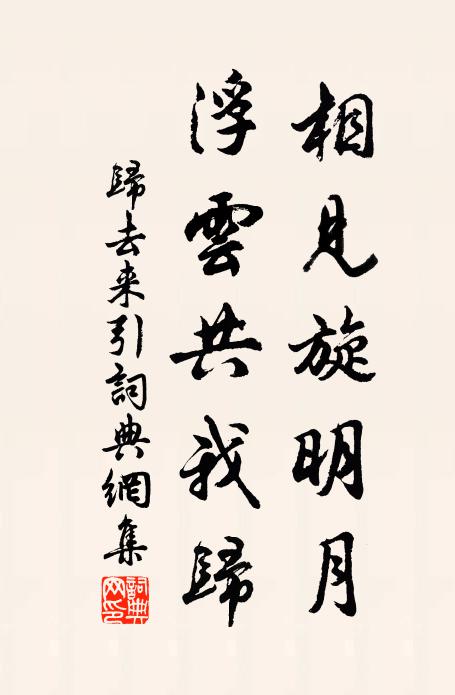 相見旋明月
浮雲共我歸
歸去来引詞典網集
詞典網印